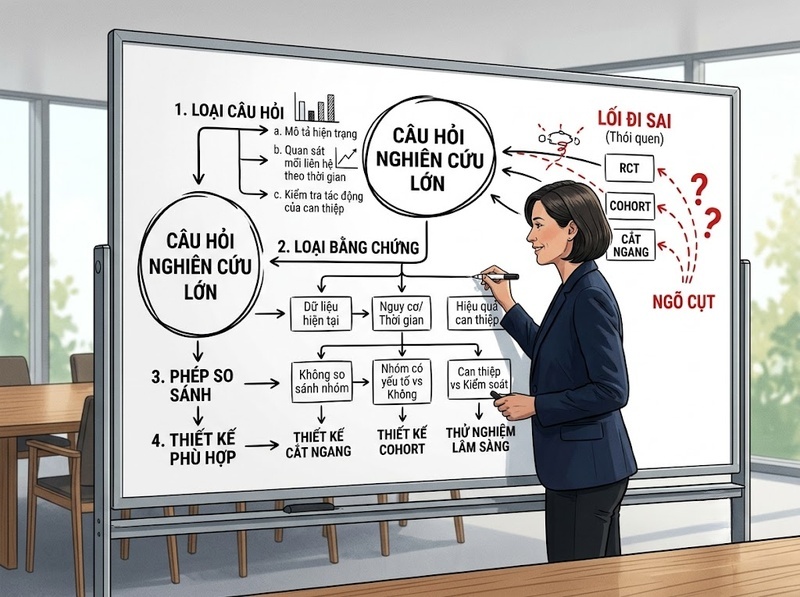 1. LOẠI CÂU HỎI
a. Mô tả hiện trạng
b. Quan sát
mối liên hệ
theo thời gian
c. Kiểm tra tác động
của can thiệp
CÂU HỎI
NGHIÊN CỨU
LỚN
LỐI ĐI SAI
(Thói quen)
RCT
COHORT
CẮT
NGANG
? ?
NGÕ CỤT
CÂU HỎI
NGHIÊN CỨU
LỚN
2. LOẠI BẰNG CHỨNG
Dữ liệu
hiện tại
Nguy cơ/
Thời gian
Hiệu quả
can thiệp
3. PHÉP SO
SÁNH
Không so
sánh nhóm
Nhóm có
yếu tố vs
Không
Can thiệp
vs Kiểm soát
4. THIẾT KẾ
PHÙ HỢP
THIẾT KẾ
CẮT NGANG
THIẾT KẾ
COHORT
THỬ NGHIỆM
LÂM SÀNG